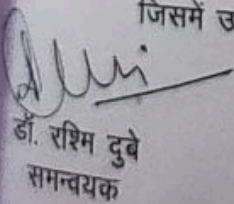 जिसमें उ
डॉ. रश्मि दुबे
समन्वयक